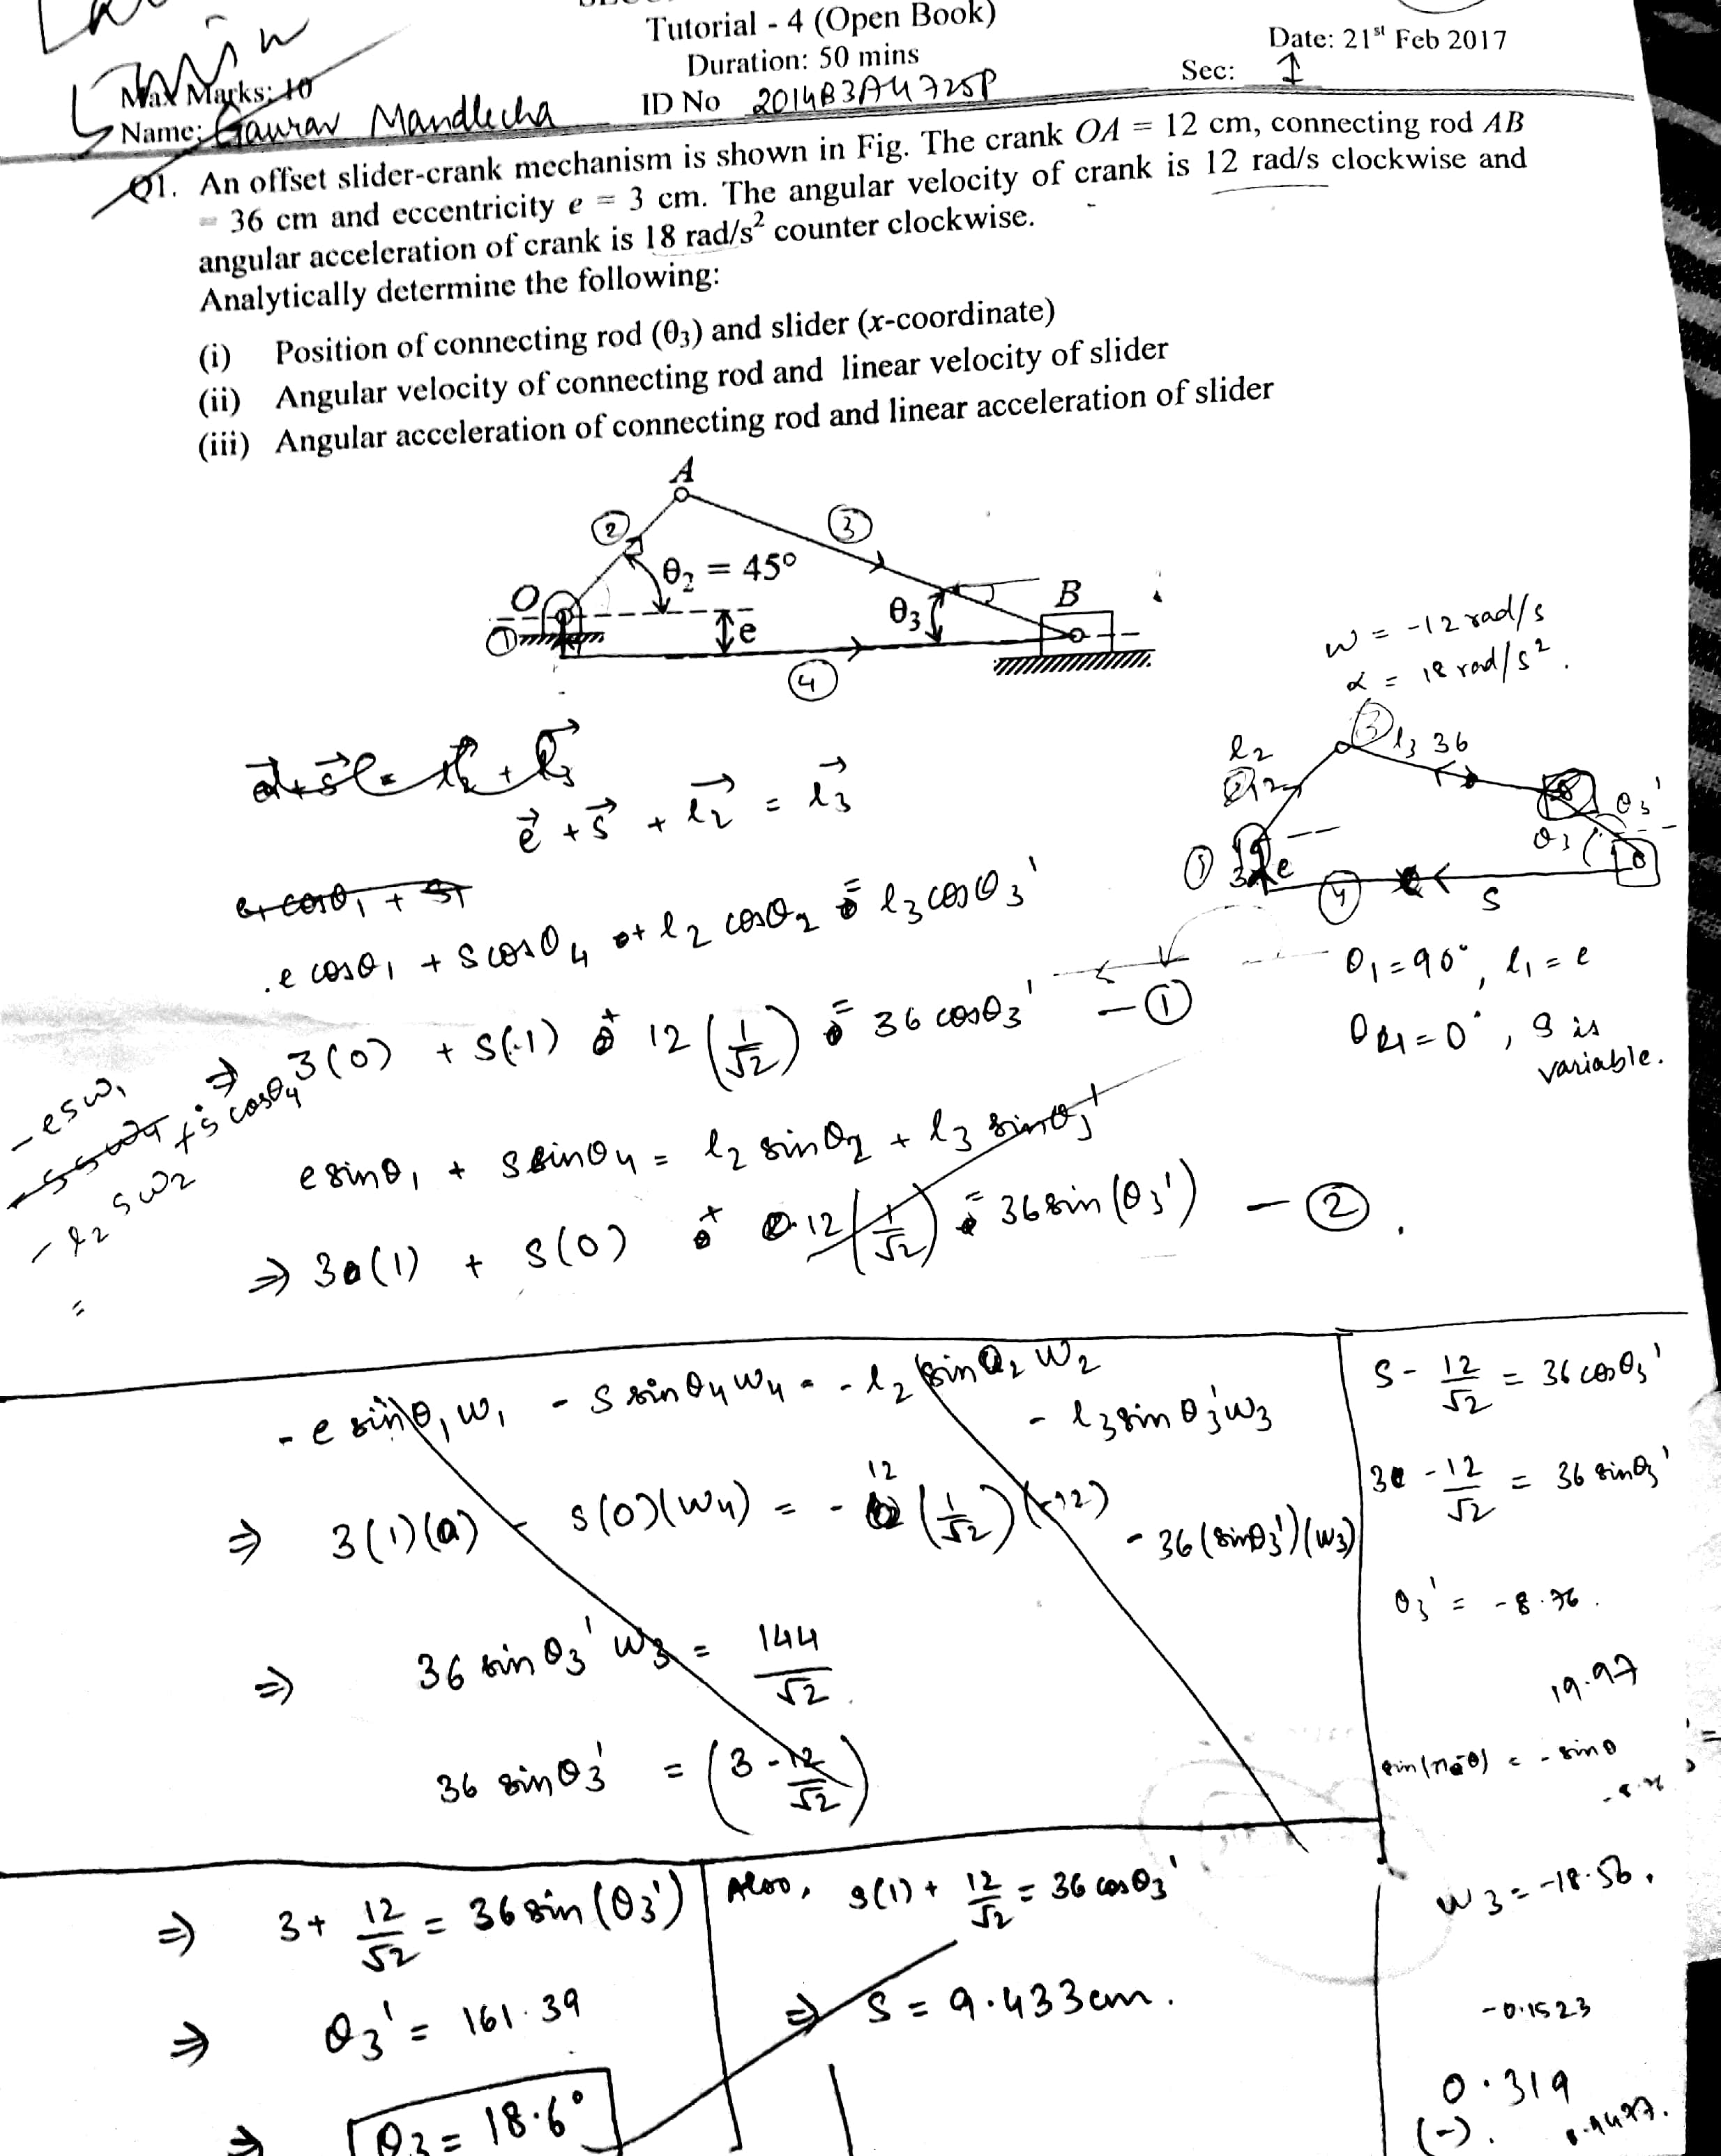 Tutorial - 4 (Open Book)
Duration: 50 mins
Date: 21st Feb 2017
Max Marks: 10
Sec: 1
Name: Gaurav Mandlecha
ID No 2014B3A4725P
Q1. An offset slider-crank mechanism is shown in Fig. The crank OA = 12 cm, connecting rod AB
= 36 cm and eccentricity e = 3 cm. The angular velocity of crank is 12 rad/s clockwise and
angular acceleration of crank is 18 rad/s² counter clockwise.
Analytically determine the following:
(i) Position of connecting rod (θ₃) and slider (x-coordinate)
(ii) Angular velocity of connecting rod and linear velocity of slider
(iii) Angular acceleration of connecting rod and linear acceleration of slider
A
2
3
θ₂ = 45°
O
1
e
θ₃
B
4
w = -12 rad/s
α = 18 rad/s².
l₂
3
l₃ 36
θ₃'
θ₃
1
3
e
4
s
e + s + l₂ = l₃
e cosθ₁ + s cosθ₄ + l₂ cosθ₂ = l₃ cosθ₃'
θ₁ = 90°, l₁ = e
⇒ 3(0) + s(-1) + 12 (1/√2) = 36 cosθ₃' - ①
θ₄ = 0°, s is
variable.
- esw₁
+ s cosθ₄
- l₂ sw₂
=
e sinθ₁ + s sinθ₄ = l₂ sinθ₂ + l₃ sinθ₃'
⇒ 3(1) + s(0) + 12 (1/√2) = 36 sin(θ₃') - ②.
- e sinθ₁ w₁ - s sinθ₄ w₄ = - l₂ sinθ₂ w₂
- l₃ sinθ₃' w₃
⇒ 3(1)(0) - s(0)(w₄) = - 12 (1/√2)(-12)
- 36(sinθ₃')(w₃)
⇒ 36 sinθ₃' w₃ = 144/√2
36 sinθ₃' = (3 - 12/√2)
s - 12/√2 = 36 cosθ₃'
3 - 12/√2 = 36 sinθ₃'
θ₃' = -8.76.
19.97
⇒ 3 + 12/√2 = 36 sin(θ₃')
⇒ θ₃' = 161.39
⇒ θ₃ = 18.6°
Also, s(1) + 12/√2 = 36 cosθ₃'
⇒ s = 9.433cm.
w₃ = -18.56.
-0.1523
0.319
(-).